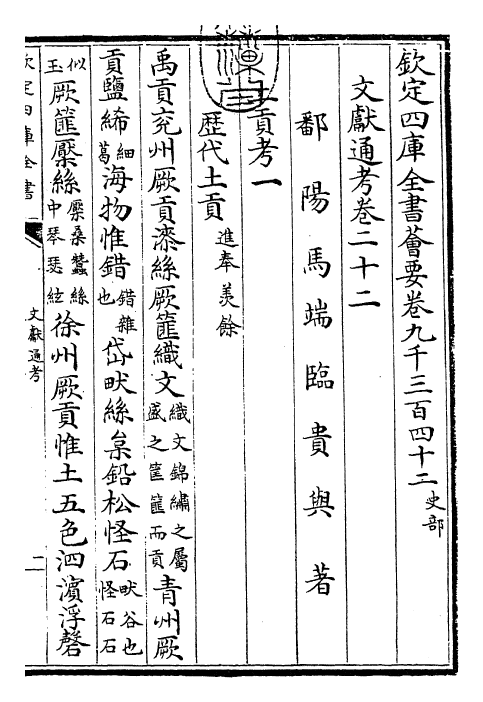 欽定四庫全書薈要卷九千三百四十二 史部
文獻通考卷二十二
鄱陽馬端臨貴與著
土貢考一
歴代土貢 進奉羨餘
禹貢兖州厥貢漆絲厥篚織文織文錦繡之屬盛之筐篚而貢青州厥
貢鹽絺細葛海物惟錯錯雜也岱畎絲枲鉛松怪石畎谷也怪石石
似玉厥篚檿絲檿桑蠶絲中琴瑟絃徐州厥貢惟土五色泗濱浮磬
欽定四庫全書
文獻通考
二